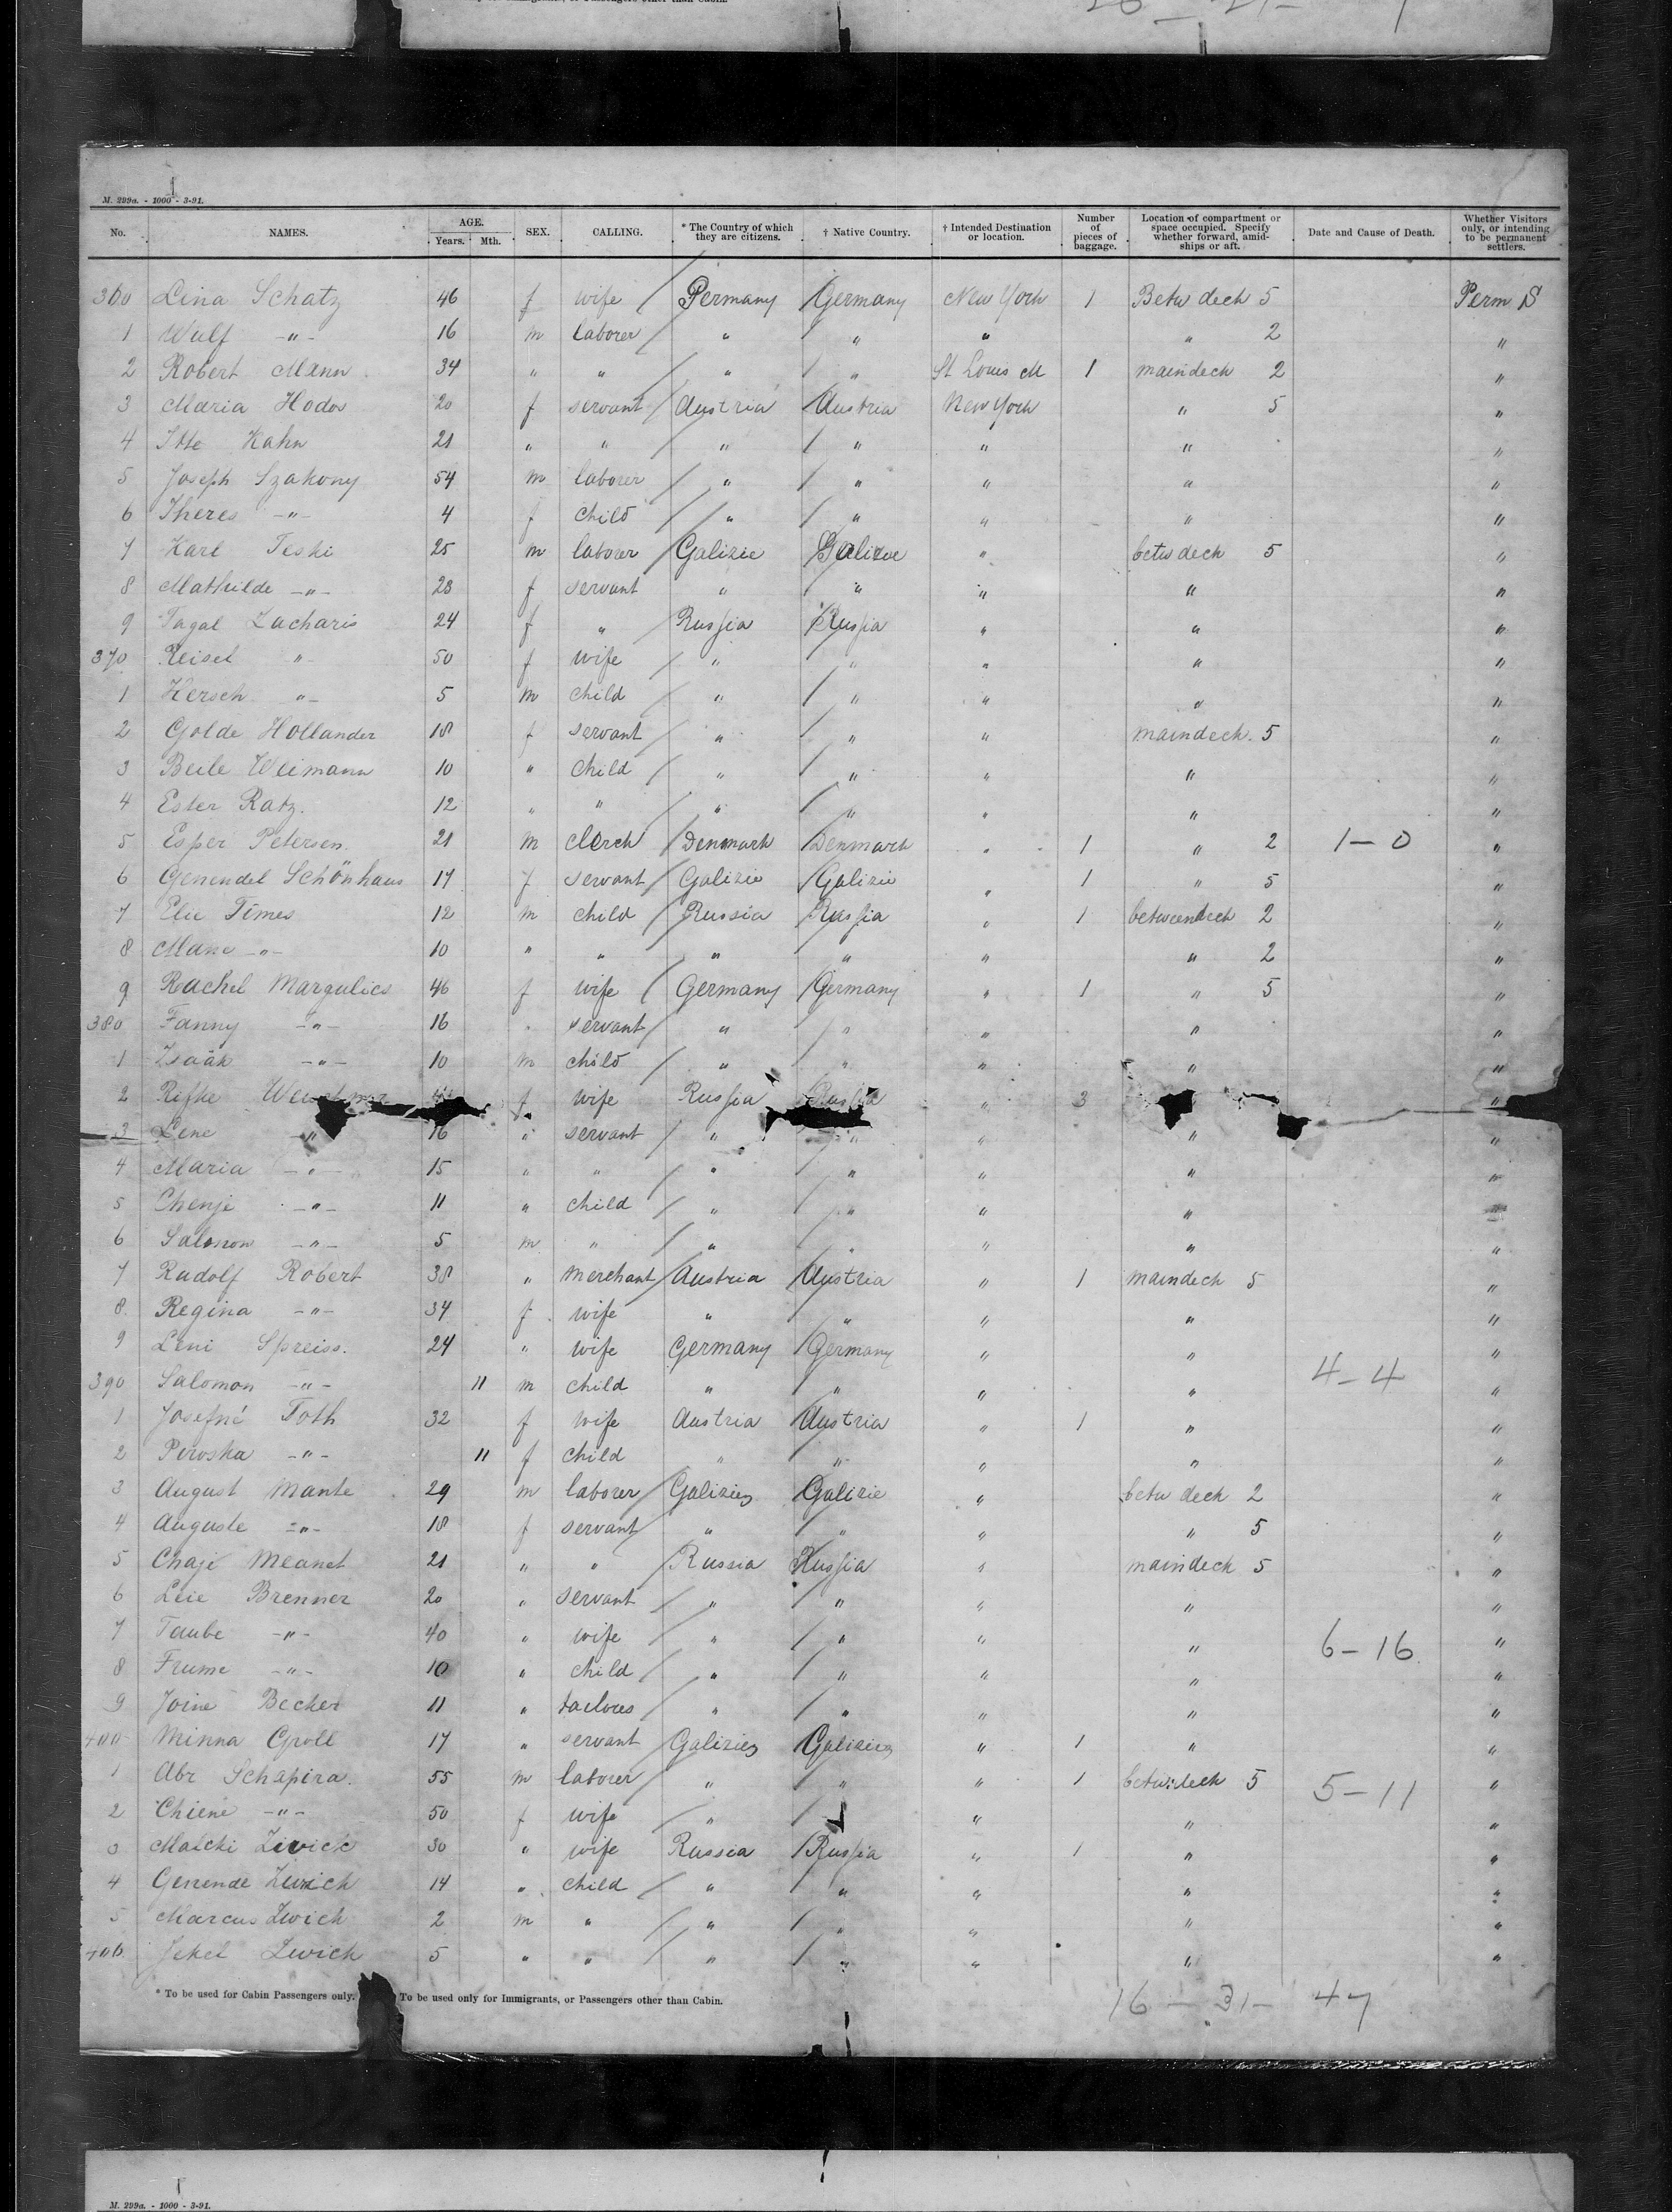 M. 299a. - 1000 - 3-91.
No. NAMES. AGE. Years. Mth. SEX. CALLING. * The Country of which they are citizens. † Native Country. † Intended Destination or location. Number of pieces of baggage. Location of compartment or space occupied. Specify whether forward, amidships or aft. Date and Cause of Death. Whether Visitors only, or intending to be permanent settlers.
360 Lina Schatz 46 f wife Germany Germany New York 1 Betw deck 5 Perm S
1 Wulf -"- 16 m laborer " " " " 2 "
2 Robert Mann 34 " " " " St Louis M 1 maindeck 2 "
3 Maria Hodos 20 f servant Austria Austria New York " 5 "
4 Itte Kahn 21 " " " " " " "
5 Joseph Szakony 54 m laborer " " " " "
6 Theres -"- 4 f child " " " " "
7 Karl Teski 25 m laborer Galizie Galizie " betw deck 5 "
8 Mathilde -"- 28 f servant " " " " "
9 Tagal Zacharis 24 f " Russia Russia " " "
370 Reisel " 50 f wife " " " " "
1 Hersch "- 5 m child " " " " "
2 Golde Hollander 18 f servant " " " maindeck 5 "
3 Beile Weimann 10 " child " " " " "
4 Ester Ratz. 12 " " " " " " "
5 Esper Petersen. 21 m clerck Denmark Denmark " 1 " 2 1-0 "
6 Genendel Schönhaus 17 f servant Galizie Galizie " 1 " 5 "
7 Elie Times 12 m child Russia Russia " 1 betweendeck 2 "
8 Mane -"- 10 " " " " " " 2 "
9 Rachel Margulies 46 f wife Germany Germany " 1 " 5 "
380 Fanny -"- 16 " servant " " " " "
1 Isaäk -"- 10 m child " " " " "
2 Rifke f wife Russia Russia " 3 "
3 Lene -"- 16 " servant " " " " "
4 Maria -"- 15 " " " " " " "
5 Chenje -"- 11 " child " " " " "
6 Salomon -"- 5 m " " " " " "
7 Rudolf Robert 38 " merchant Austria Austria " 1 maindeck 5 "
8 Regina -"- 34 f wife " " " " "
9 Leni Spreiss. 24 " wife Germany Germany " " "
390 Salomon -"- 11 m child " " " " 4-4 "
1 Josefné Toth 32 f wife Austria Austria " 1 " "
2 Piroska -"- 11 f child " " " " "
3 August Mante 29 m laborer Galizien Galizie " betw deck 2 "
4 Auguste -"- 18 f servant " " " " 5 "
5 Chaje Meanet 21 " " Russia Russia " maindeck 5 "
6 Leie Brenner 20 " servant " " " " "
7 Taube -"- 40 " wife " " " " 6-16 "
8 Frume -"- 10 " child " " " " "
9 Joine Becker 11 " " " " " "
400 Minna Groll 17 " servant Galizien Galizien " 1 " "
1 Abr Schapira. 55 m laborer " " " 1 betw: deck 5 5-11 "
2 Chiene -"- 50 f wife " " " " "
3 Malchi Zwick 30 " wife Russia Russia " 1 " "
4 Genende Zwick 14 " child " " " " "
5 Marcus Zwick 2 m " " " " " "
406 Jekel Zwick 5 " " " " " " "
* To be used for Cabin Passengers only. To be used only for Immigrants, or Passengers other than Cabin.
16 - 31 - 47
M. 299a. - 1000 - 3-91.